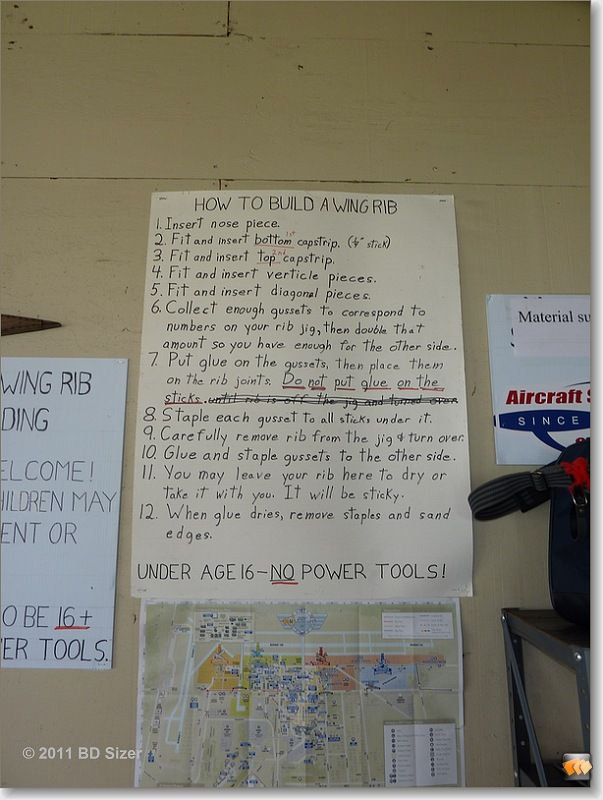 HOW TO BUILD A WING RIB
1. Insert nose piece.
2. Fit and insert bottom 1st capstrip. (¼" stick)
3. Fit and insert top 2nd capstrip.
4. Fit and insert verticle pieces.
5. Fit and insert diagonal pieces.
6. Collect enough gussets to correspond to
numbers on your rib jig, then double that
amount so you have enough for the other side.
7. Put glue on the gussets, then place them
on the rib joints. Do not put glue on the
sticks. until rib is off the jig and turned over
8. Staple each gusset to all sticks under it.
9. Carefully remove rib from the jig & turn over.
10. Glue and staple gussets to the other side.
11. You may leave your rib here to dry or
take it with you. It will be sticky.
12. When glue dries, remove staples and sand
edges.
UNDER AGE 16-NO POWER TOOLS!
WING RIB
DING
ELCOME!
HILDREN MAY
ENT OR
O BE 16+
ER TOOLS.
Material su
Aircraft S
SINCE
© 2011 BD Sizer